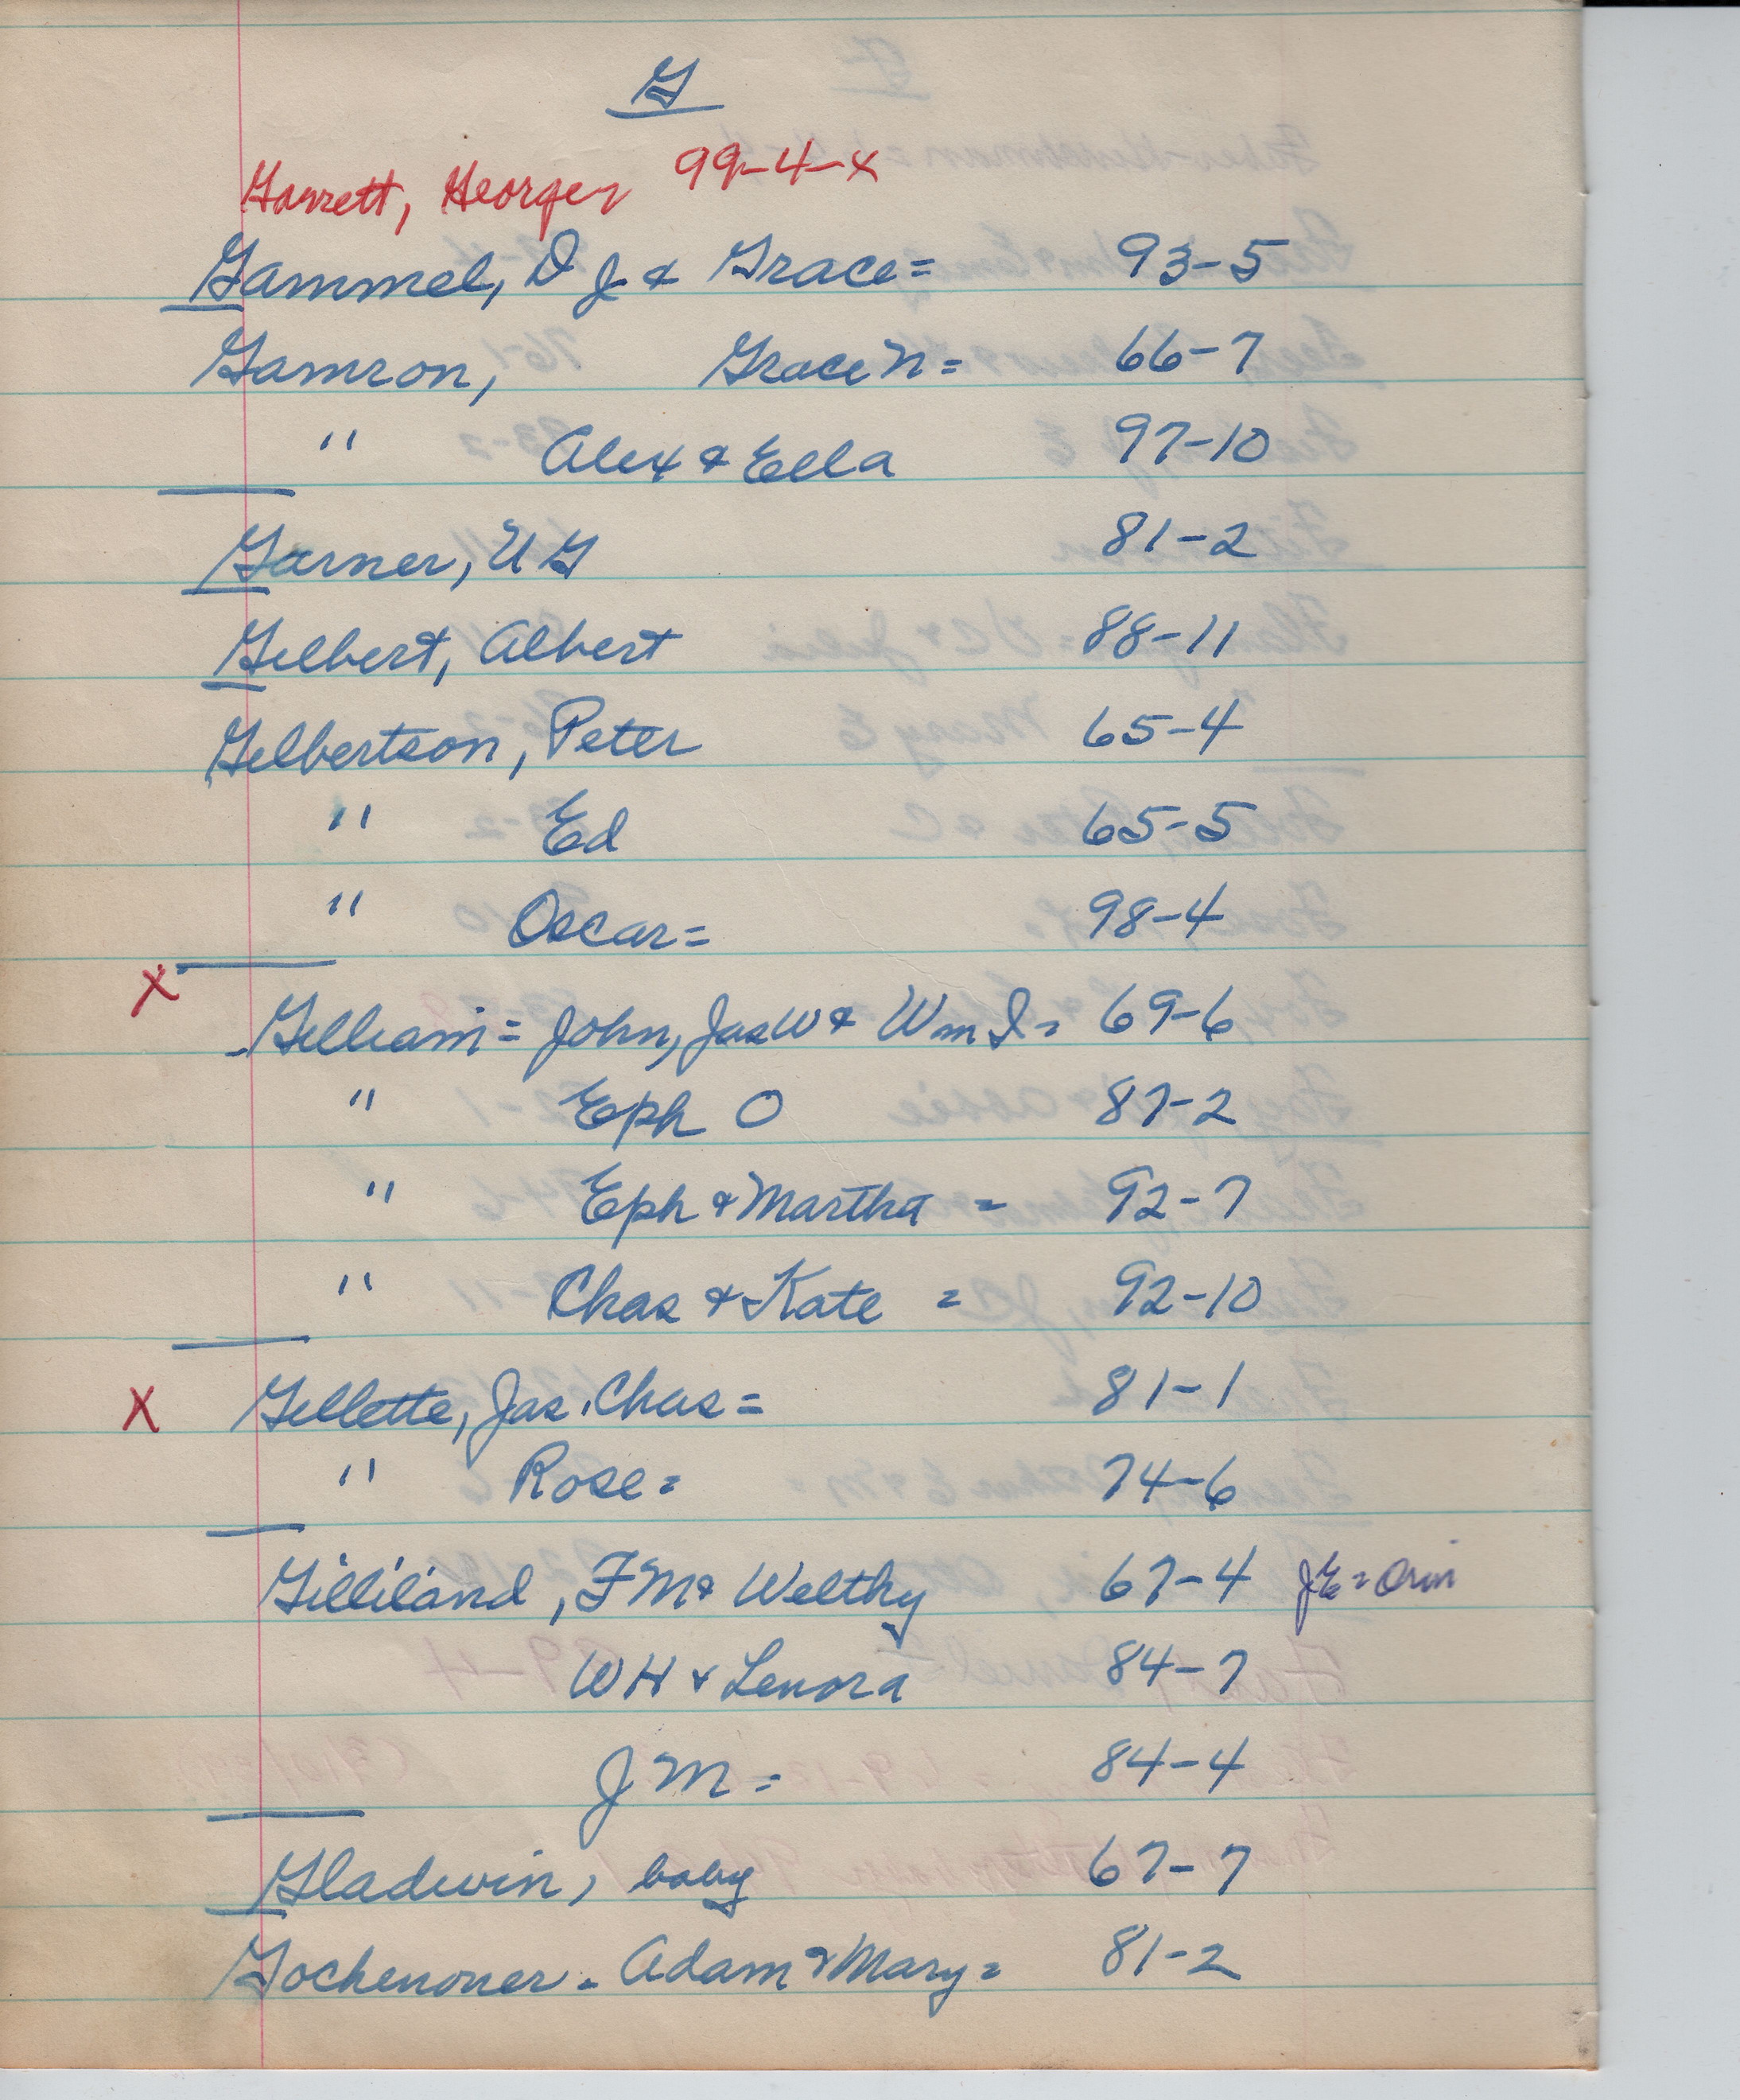 G
Garrett, George 99-4-x
Gammel, D J & Grace = 93-5
Gamron, Grace N = 66-7
" Alex & Ella 97-10
Garner, U G 81-2
Gilbert, Albert 88-11
Gilbertson, Peter 65-4
" Ed 65-5
" Oscar = 98-4
X
Gilliam = John, Jas W & Wm I = 69-6
" Eph O 87-2
" Eph & Martha = 92-7
" Chas & Kate = 92-10
X Gillette, Jas. Chas = 81-1
" Rose = 74-6
Gilliland, F M & Welthy 67-4 JE = Orin
W H & Lenora 84-7
J M = 84-4
Gladwin, baby 67-7
Gochenoner - Adam & Mary = 81-2